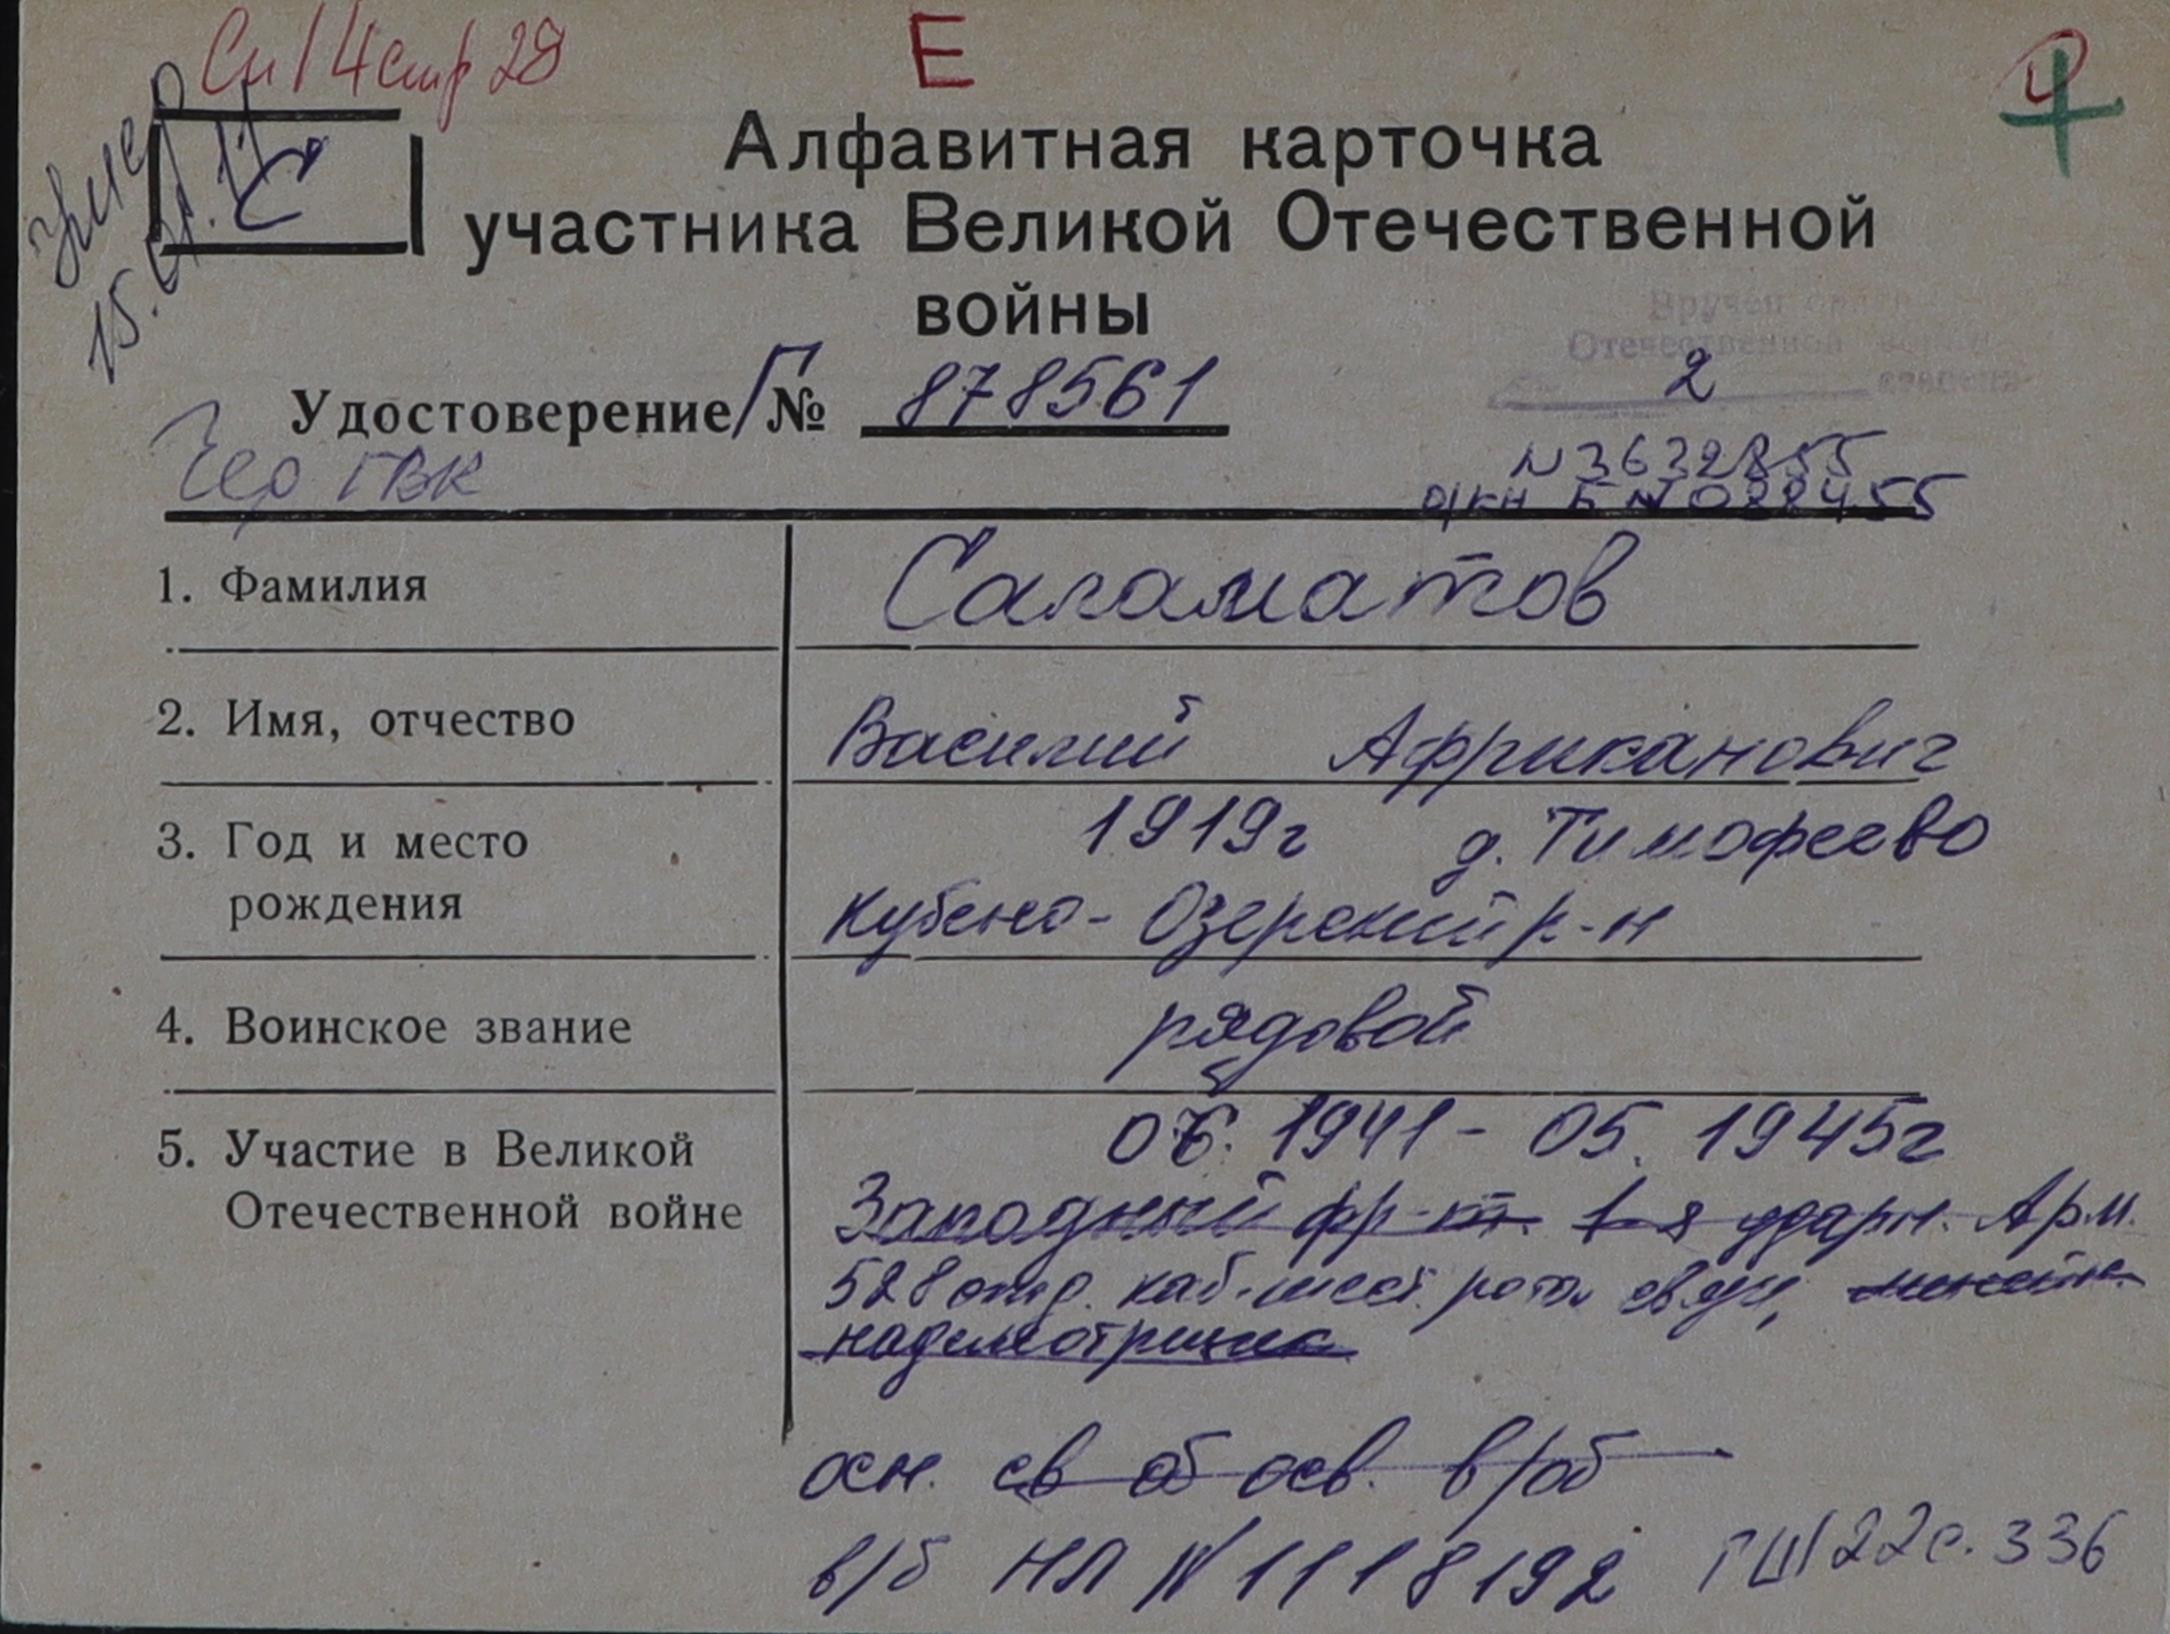 Сп 14 стр 28
Е
умер
15.01.11
С
Алфавитная карточка
участника Великой Отечественной
войны
Вручен орден
Отечественной войны
2 степени
Удостоверение/Г № 878561
Чер ГВК
N 3632855
о/кн Б N 022455
1. Фамилия
Саламатов
2. Имя, отчество
Василий Африканович
3. Год и место
рождения
1919г д. Тимофеево
Кубено-Озерский р-н
4. Воинское звание
рядовой
5. Участие в Великой
Отечественной войне
06. 1941 - 05. 1945г
Западный фр-т. 1-я ударн. Арм.
528 отд. каб-шест. рота связи,
надсмотрщик
осн. св об осв. в/об
в/б НП № 1118192
ГШ/22с. 336